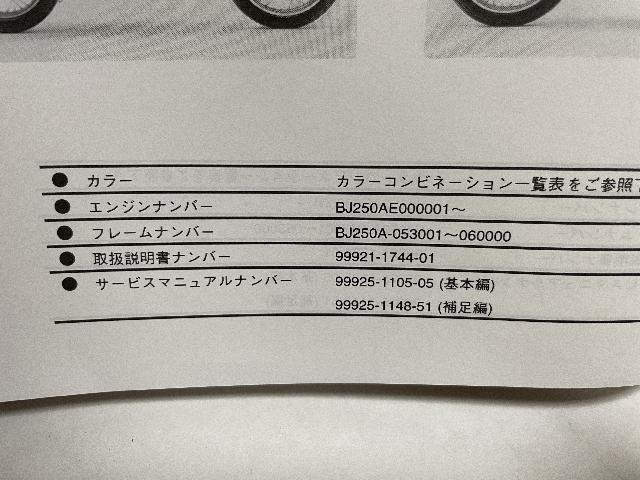 ● カラー カラーコンビネーション一覧表をご参照下
● エンジンナンバー BJ250AE000001～
● フレームナンバー BJ250A-053001～060000
● 取扱説明書ナンバー 99921-1744-01
● サービスマニュアルナンバー 99925-1105-05 (基本編)
99925-1148-51 (補足編)